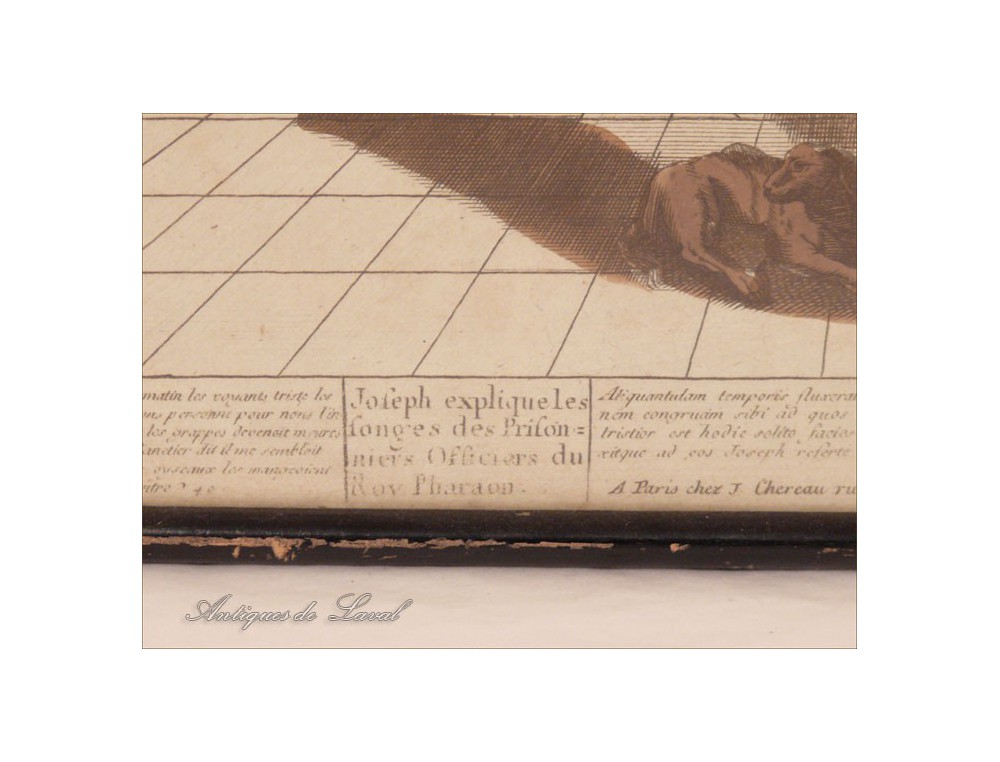 matin les voyants triste les
personne pour nous l'in
les grappes devenoit meures
anetier dit il me sembloit
oyseaux les mangeoient
40
Joseph explique les
songes des Prison=
niers Officiers du
Roy Pharaon.
Aliquantulum temporis fluxerat
nem congruam sibi ad quos
tristior est hodie solito facies
xitque ad eos Joseph referte
A Paris chez J. Chereau ru
Antiques de Laval